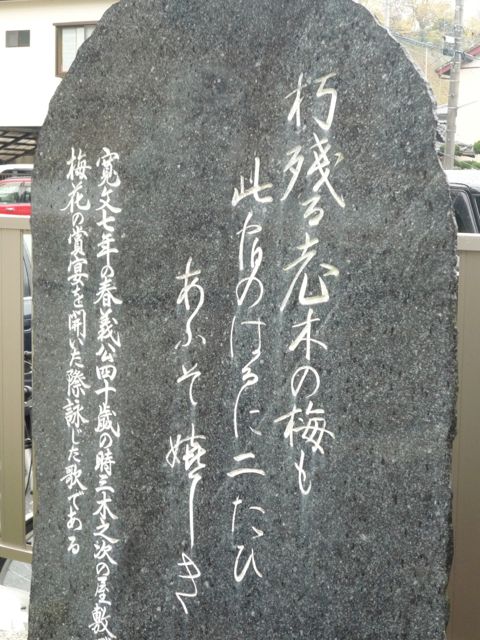 朽残る老木の梅も
此宿のはるに二たひ
あふそ嬉しき
寛文七年の春義公四十歳の時三木之次の屋敷で
梅花の賞宴を開いた際詠じた歌である